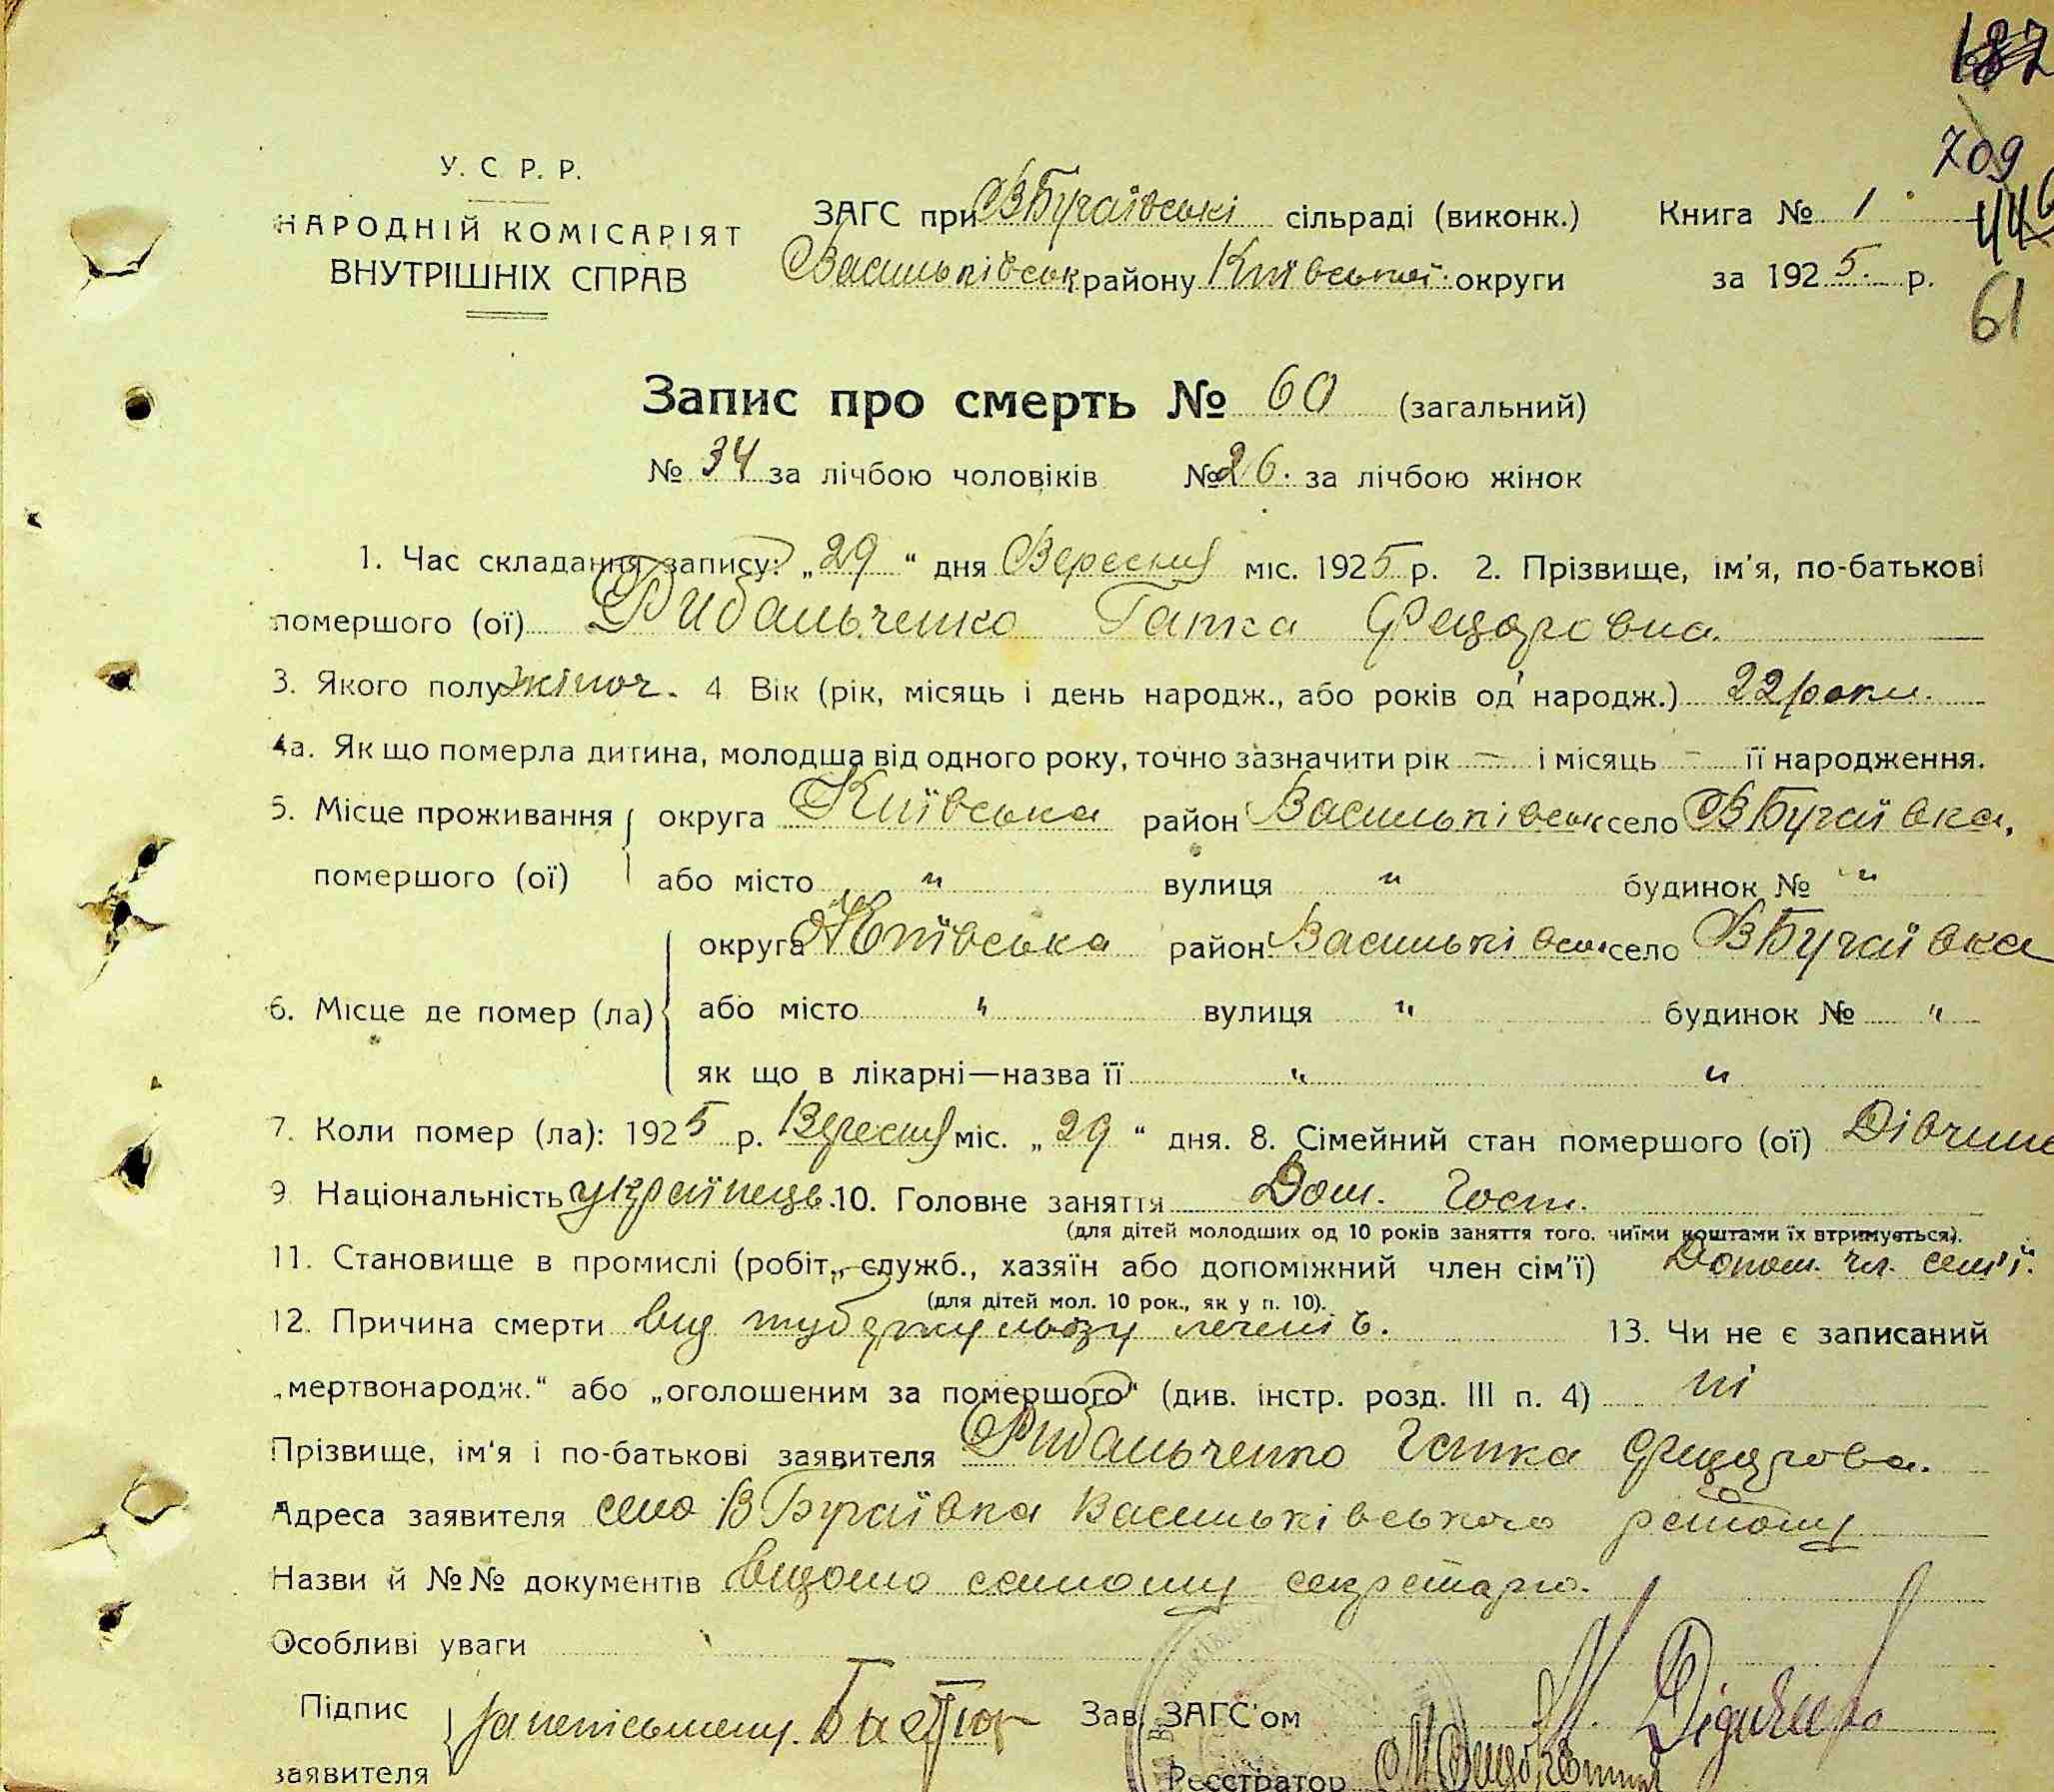 187
У. С. Р. Р.
709
НАРОДНІЙ КОМІСАРІЯТ ЗАГС при ВБугаївські сільраді (виконк.) Книга № 1
446
ВНУТРІШНІХ СПРАВ Васильківськ району Київської округи за 1925 р.
61
Запис про смерть № 60 (загальний)
№ 34 за лічбою чоловіків № 26. за лічбою жінок
1. Час складання запису: „29“ дня Вересня міс. 1925 р. 2. Прізвище, ім'я, по-батькові
помершого (ої) Рибальченко Гапка Федоровна.
3. Якого полу жіноч. 4 Вік (рік, місяць і день народж., або років од народж.) 22 роки.
4а. Як що померла дитина, молодша від одного року, точно зазначити рік — і місяць — її народження.
5. Місце проживання округа Київська район Васильківськ село ВБугаївка,
помершого (ої) або місто " вулиця " будинок № "
округа Київська район Васильківськ село ВБугаївка
6. Місце де помер (ла) або місто " вулиця " будинок № "
як що в лікарні—назва її " "
7. Коли помер (ла): 1925 р. Вересня міс. „29“ дня. 8. Сімейний стан помершого (ої) Дівчина
9. Національність українець. 10. Головне заняття Дом. Госп.
(для дітей молодших од 10 років заняття того, чиїми коштами їх втримується).
11. Становище в промислі (робіт., служб., хазяїн або допоміжний член сім'ї) Допом. чл. сем'ї.
(для дітей мол. 10 рок., як у п. 10).
12. Причина смерти від туберкульозу легенів. 13. Чи не є записаний
„мертвонародж.“ або „оголошеним за помершого“ (див. інстр. розд. III п. 4) ні
Прізвище, ім'я і по-батькові заявителя Рибальченко Гапка Федорова.
Адреса заявителя село ВБугаївка Васильківського району
Назви й №№ документів відомо самому секретарю.
Особливі уваги
Підпис Зав. ЗАГС'ом
заявителя Реєстратор